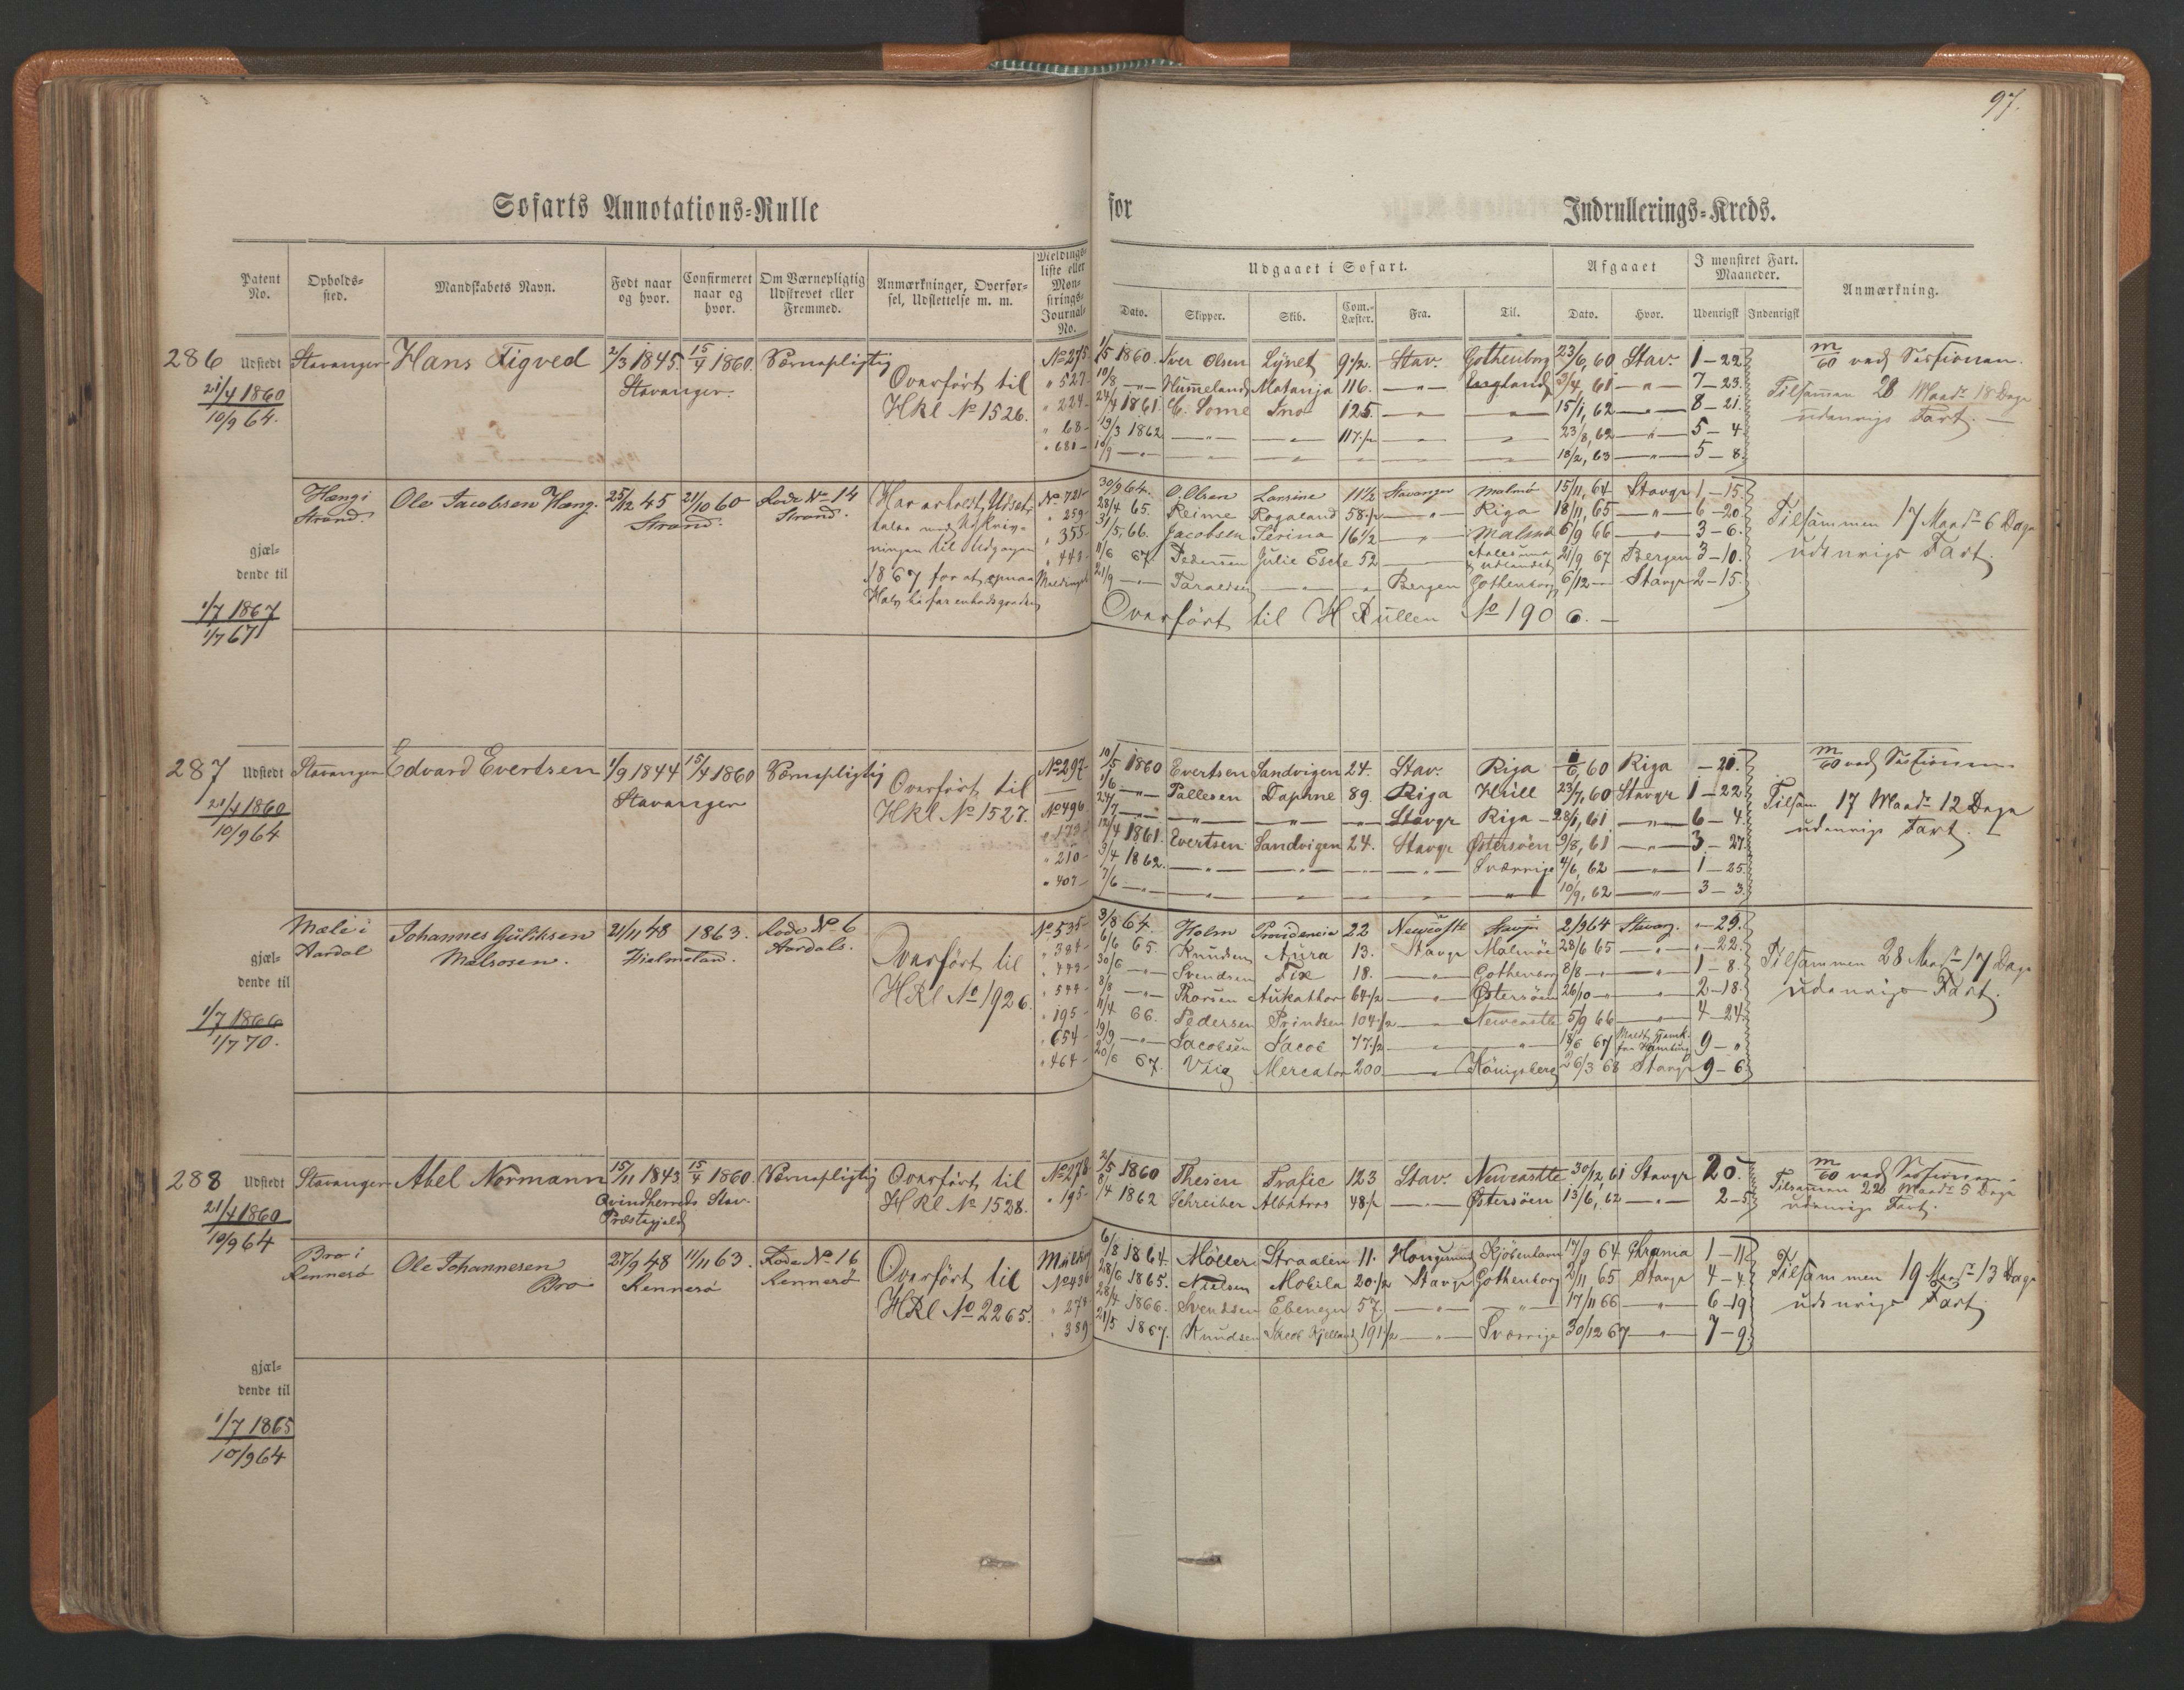 97.
Søfarts Annotations-Rulle for Indrullerings-Kreds.
Patent No. Opholds-sted. Mandskabets Navn. Født naar og hvor. Confirmeret naar og hvor. Om Værnepligtig Udskrevet eller Fremmed. Anmærkninger, Overfør-sel, Udslettelse m. m. Meldings-liste eller Møn-strings-Journal-No.
Udgaaet i Søfart. Afgaaet I mønstret Fart. Maaneder. Anmærkning.
Dato. Skipper. Skib. Com.-Læster. Fra. Til. Dato. Hvor. Udenrigsk Indenrigsk
286 Udstedt Stavanger Hans Tigved 2/3 1845. 15/4 1860. Værnepligtig No 275
21/4 1860 Stavanger. Overført til " 527
10/9 64. HRl No 1526. " 224
" 68
" 681
1/5 1860. Iver Olsen Lynet 9 1/2. Stav. Gothenborg 23/6, 60 Stav. 1 - 22
10/8 - " - Hummeland Matanja 116. - " - England 3/4, 61 - " - 7 - 23.
24/4 1861. C. Some Ino 125. - " - - " - 15/1, 62 - " - 8 - 21.
19/3 1862 - " - - " - 117 1/2 - " - - " - 23/8, 62 - " - 5 - 4
10/9 - " - 18/2, 63 - " - 5 - 8.
m/60 ved Sessionen.
Tilsammen 28 Maadr 18 Dage
udenrigs Fart. -
Hæng i Ole Jacobsen Hæng. 25/12 45 21/10 60 Rode No 14 Har erholdt Udset- No 721
Strand. Strand. Strand. telse med Udskriv- " 259
gjæl- ningen til Udgangen " 355
dende til " 443
1/7 1867 1867 for at opnaa Meldingsl
1/7 67
30/9 64. O. Olsen Larsine 11 1/2 Stavanger Malmø 15/11, 64 Stavgr 1, - 15.
28/4 65. Reime Rogaland 58 1/2 - " - Riga 18/11, 65 - " - 6 - 20
31/5, 66. Jacobsen Serina 16 1/2 - " - Malmø 6/9 66 - " - 3 - 6.
11/6 67. Pedersen Julie 52 Aalesund & Udlandet 21/9 67 Bergen 3 - 10.
21/9 - " - Taraldsen - " - Bergen Gothenborg 6/12 - Stavgr 2 - 15.
Overført til H Rullen No 1906. -
Tilsammen 17 Maadr 6 Dage
udenrigs Fart.
287 Udstedt Stavanger Edvard Evertsen 1/9 1844 15/4 1860 Værnepligtig No 297
21/4 1860 Stavanger Overført til No 496
10/9 64 HRl No 1527. " 173
" 210
" 407
10/5 1860 Evertsen Sandvigen 24. Stav. Riga 1/6, 60 Riga - 21.
1/6 - " - Pallesen Daphne 89. Riga Hull 23/7, 60 Stavgr 1 - 22
24/7 - " - - " - - " - - " - Stavgr Riga - 28/1, 61 - " - 6 - 4.
12/4 1861. Evertsen Sandvigen 24. Stavgr Østersøen 9/8, 61 - " - 3 - 27
3/4 1862. - " - - " - - " - - " - Sverrige 4/6, 62 - " - 1 - 25.
7/6 - " - - " - - " - - " - - " - - " - 10/9, 62 - " - 3 - 3.
m/60 ved Sessionen
Tilsam 17 Maadr 12 Dage
udenrigs Fart. -
Mæle i Johannes Guliksen 21/11 48 1863. Rode No 6 No 535
Aardal Mælsosen. Hjelmeland. Aardals. Overført til " 384
gjæl- HRl No 1926. " 443
dende til " 544
1/7 1866 " 195
1/7 70. " 654
" 464
3/8 64. Holm Providencia 22 Newcastle Stavgr 2/9 64 Stavang. " - 29.
6/6 65. Knudsen Aura 13. Stavgr Malmöe 28/6 65 - " - " - 22.
30/6 - " - Svendsen Fix 18. - " - Gothenborg 8/8 - " - - " - 1 - 8.
8/8 - " - Thorsen 64 1/2 - " - Østersøen 26/10 - " - - " - 2 - 18.
11/4 66. Pedersen Prindsen 104 1/2 - " - Newcastle 5/9 66 - " - 4 - 24
19/9 - " - Jacobsen Jacob 77 1/2 - " - - " - 18/6 67 Meldt hjemk. fra Hamburg 9 - "
20/6 67. Viig Mercator 200 - " - Königsberg 26/3 68 Stavgr 9 - 6
Tilsammen 28 Maadr 17 Dage
udenrigs Fart.
288 Udstedt Stavanger Abel Normann 15/11 1843 15/4 1860. Værnepligtig Overført til No 278
21/4 1860 Qvindherreds Stav. HRl No 1528. " 195
10/9 64 Præstegjeld
2/5 1860 Thesen Trafic 123 Stav. Newcastle 30/12, 61 Stavgr 20.
8/4 1862 Schreiber Albatros 48 1/2 - " - Østersøen 13/6, 62 - " - 2 - 5
m/60 ved Sessionen.
Tilsammen 22 Maadr 5 Dage
udenrigs Fart.
Bro i Ole Johannesen 27/9 48 11/11 63. Rode No 16 Overført til Meldingsl
Rennesø Bro Rennesø Rennesø HRl No 2265. No 436
gjæl- " 278
dende til " 389
1/7 1865
10/9 64
6/8 1864. Möller Straalen 11. Haugesund Kjöbenhavn 17/9 64 Chrania 1 - 11
28/6 1865. Nielsen Mobila 20 1/2 Stavgr Gothenborg 2/11 65 Stavgr 4 - 4.
28/4 1866. Svendsen Ebenezer 57. - " - - " - 17/11 66 - " - 6 - 19
21/5 1867. Knudsen Jacob Kjelland 191 1/2 - " - Sverrige 30/12 67 - " - 7 - 9.
Tilsammen 19 Maadr 13 Dage
udenrigs Fart.